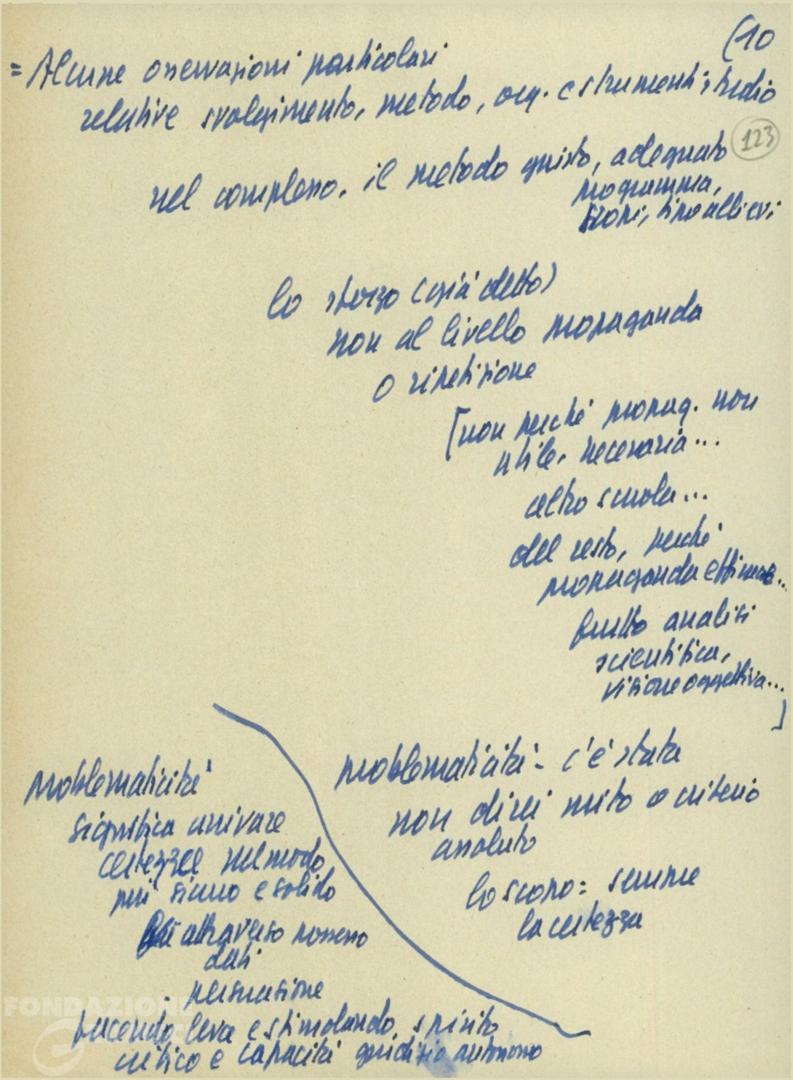 (10
= Alcune osservazioni particolari
relative svolgimento, metodo, org. e strumenti studio
123
nel complesso, il metodo giusto, adeguato
programma,
scopi, tipo allievi
lo sforzo (già detto)
non al livello propaganda
o ripetizione
[non perché propag. non
utile, necessaria...
altro scuola...
del resto, perché
propaganda efficace...
frutto analisi
scientifica,
visione oggettiva...
]
problematicità - c'è stata
non direi mito o criterio
assoluto
lo scopo: sempre
la certezza
problematicità
significa arrivare
certezze nel modo
più sicuro e solido
attraverso possesso
dati
persuasione
facendo leva e stimolando spirito
critico e capacità giudizio autonomo
FONDAZIONE